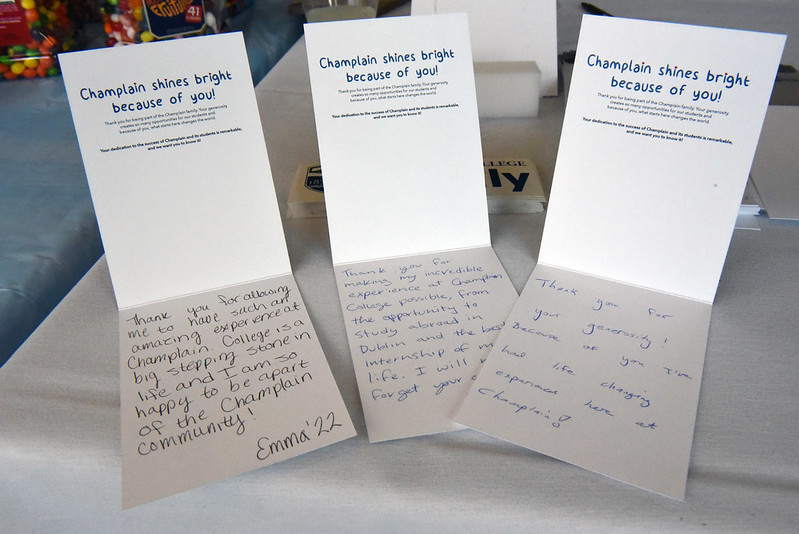 41
LLEGE
ly
Champlain shines bright
because of you!
Thank you for being part of the Champlain family. Your generosity
creates so many opportunities for our students and
because of you, what starts here changes the world.
Your dedication to the success of Champlain and its students is remarkable,
and we want you to know it!
Thank you for allowing
me to have such an
amazing experience at
Champlain. College is a
big stepping stone in
life and I am so
happy to be apart
of the Champlain
community!
Emma '22
Champlain shines bright
because of you!
Thank you for being part of the Champlain family. Your generosity
creates so many opportunities for our students and
because of you, what starts here changes the world.
Your dedication to the success of Champlain and its students is remarkable,
and we want you to know it!
Thank you for
making my incredible
experience at Champlain
College possible, from
the opportunity to
study abroad in
Dublin and the best
internship of m
life. I will
forget your
Champlain shines bright
because of you!
Thank you for being part of the Champlain family. Your generosity
creates so many opportunities for our students and
because of you, what starts here changes the world.
Your dedication to the success of Champlain and its students is remarkable,
and we want you to know it!
Thank you for
your generosity!
Because of you I've
had life changing
experiences here at
Champlain!